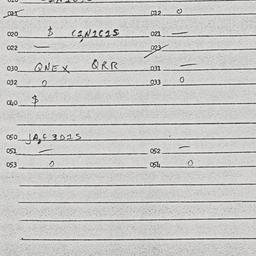 012 0
020 $ C2N2C2S 021 —
022 — 023
030 QNEX QRR 031 —
032 0 033 0
040 $
050 JA,C3D1S
051 — 052 —
053 0 054 0